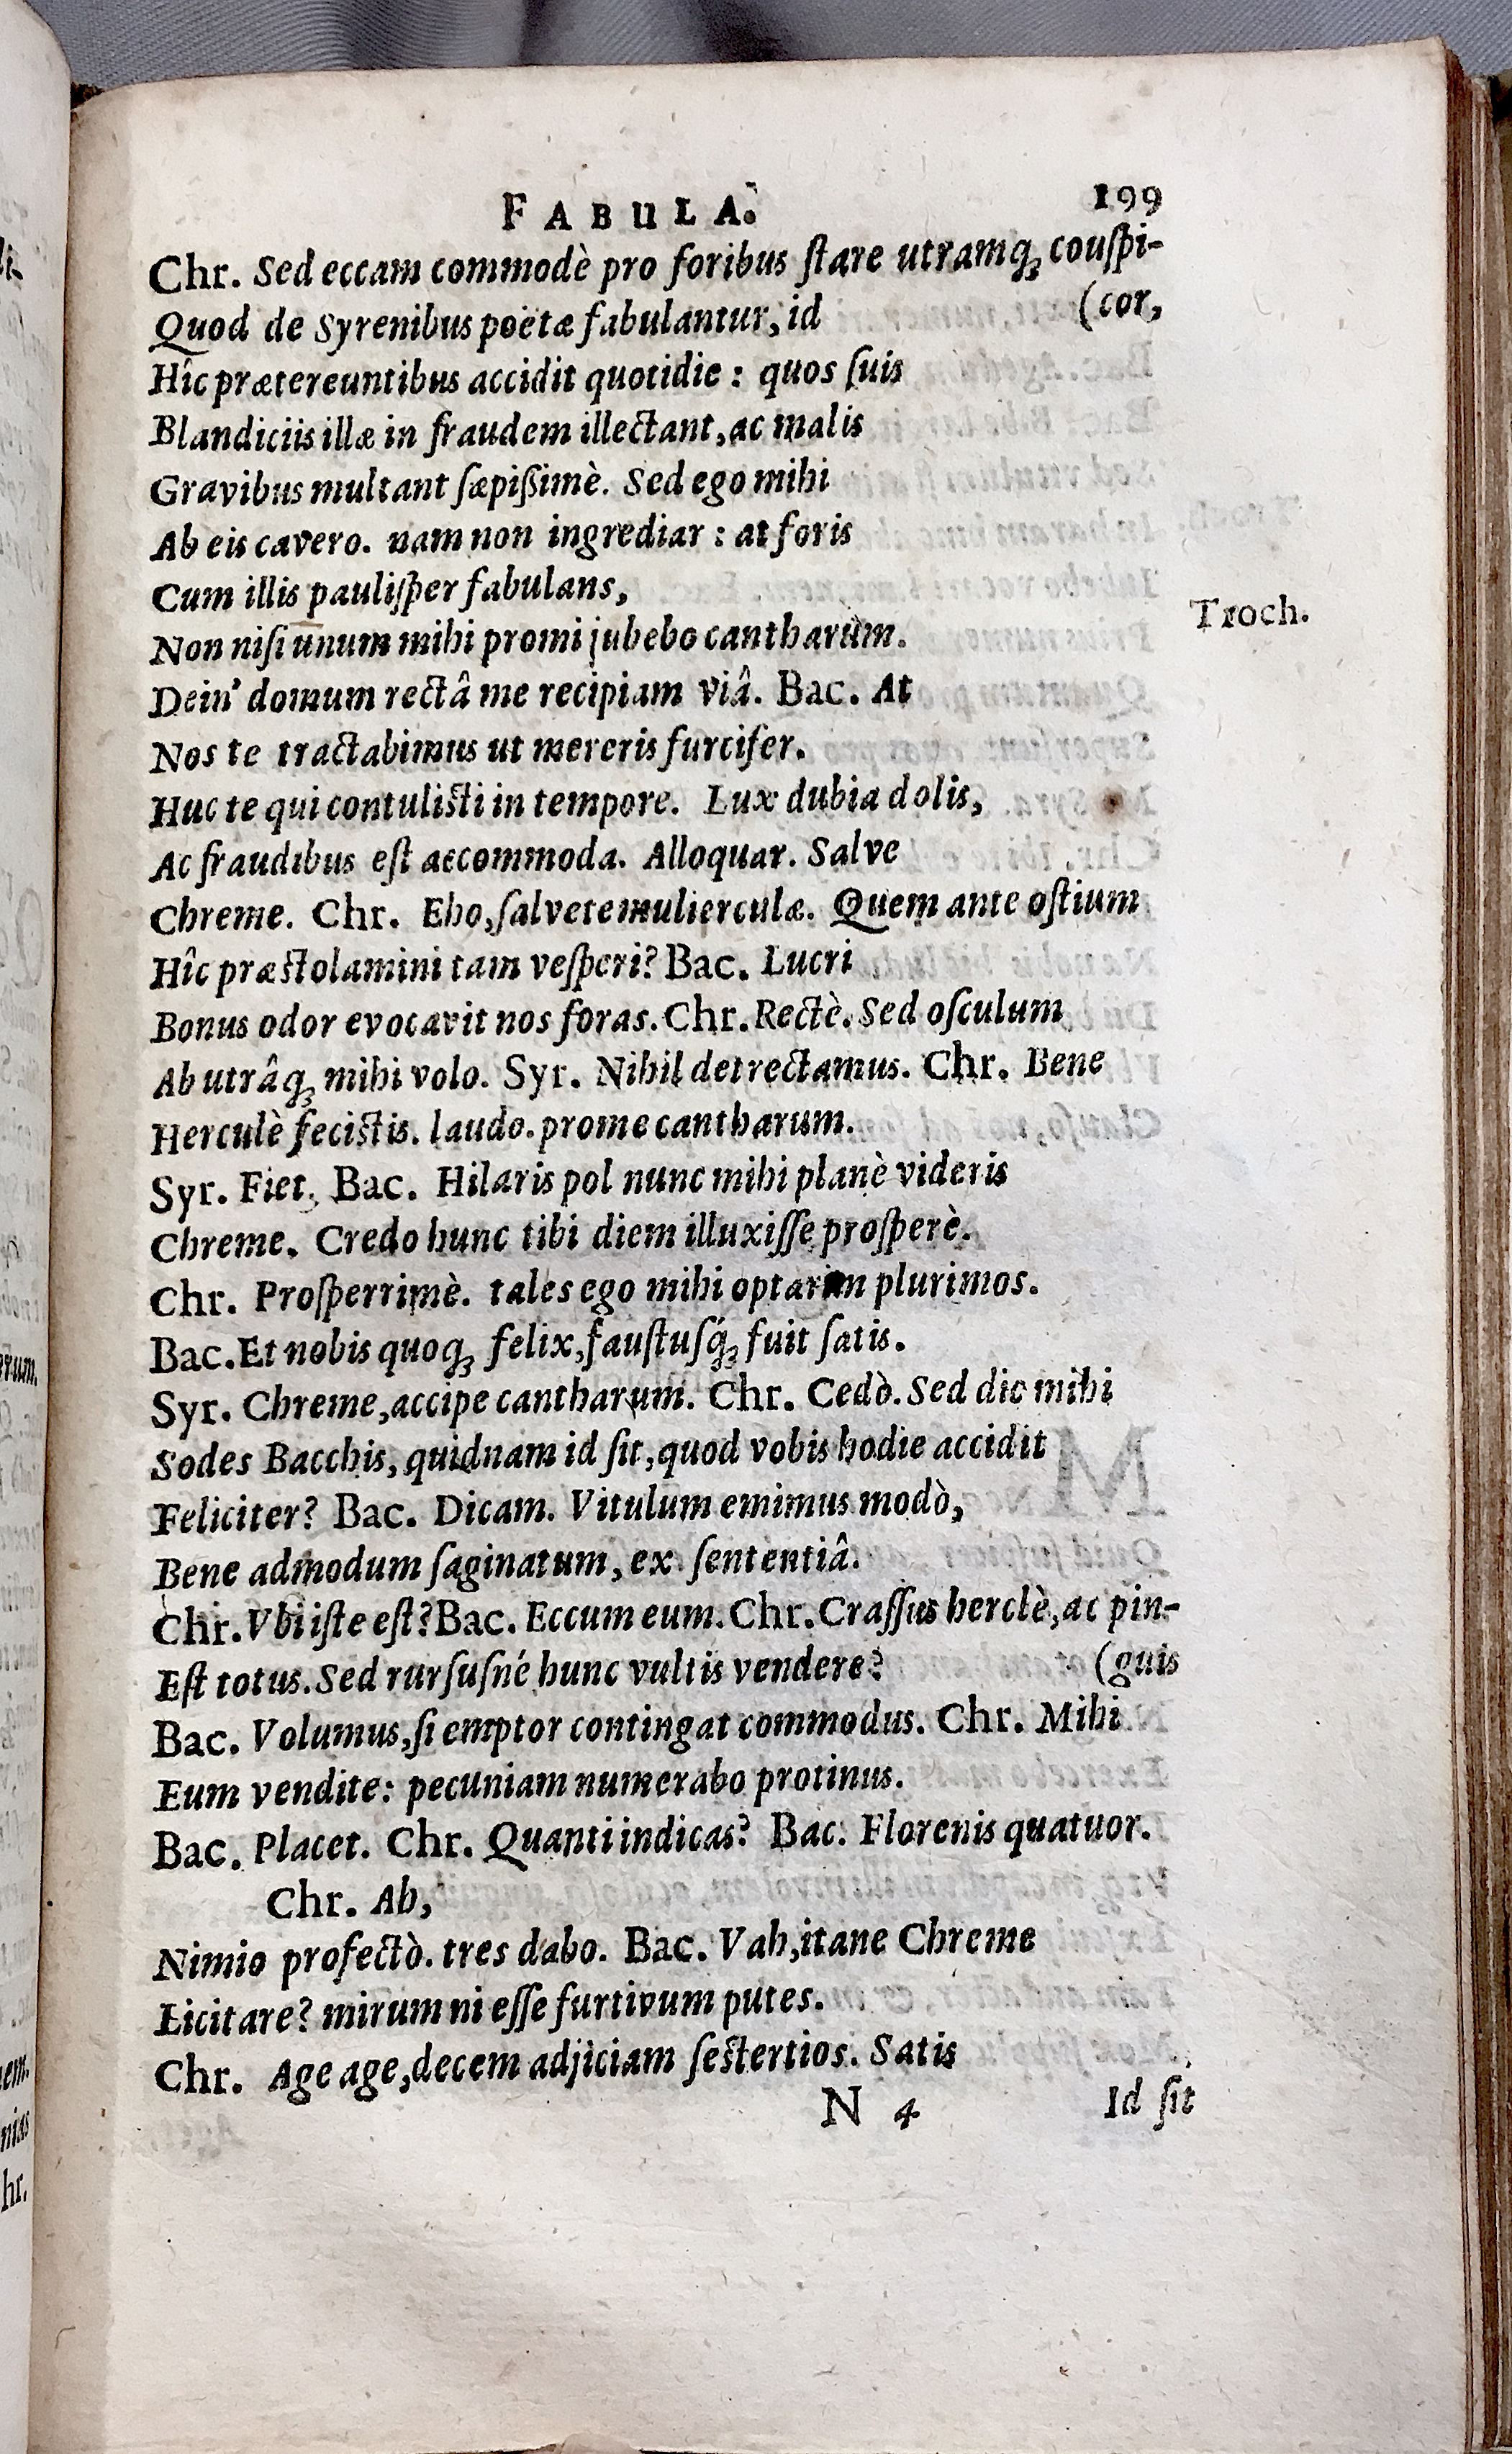 FABULA. 199
Chr. Sed eccam commodè pro foribus ſtare utramq; couſpi-
(cor,
Quod de Syrenibus poëtæ fabulantur, id
Hîc prætereuntibus accidit quotidie : quos ſuis
Blandiciis illæ in fraudem illectant, ac malis
Gravibus multant ſæpißimè. Sed ego mihi
Ab eis cavero. nam non ingrediar : at foris
Cum illis pauliſper fabulans,
Troch.
Non niſi unum mihi promi jubebo cantharum.
Dein' domum rectâ me recipiam viâ. Bac. At
Nos te tractabimus ut mereris furcifer.
Huc te qui contulisti in tempore. Lux dubia dolis,
Ac fraudibus eſt accommoda. Alloquar. Salve
Chreme. Chr. Eho, ſalvete mulierculæ. Quem ante oſtium
Hîc præstolamini tam veſperi? Bac. Lucri
Bonus odor evocavit nos foras. Chr. Rectè. Sed oſculum
Ab utrâq; mihi volo. Syr. Nihil detrectamus. Chr. Bene
Herculè fecistis. laudo. prome cantharum.
Syr. Fiet. Bac. Hilaris pol nunc mihi planè videris
Chreme. Credo hunc tibi diem illuxiſſe proſperè.
Chr. Proſperrimè. tales ego mihi optarim plurimos.
Bac. Et nobis quoq; felix, fauſtuſq́; fuit ſatis.
Syr. Chreme, accipe cantharum. Chr. Cedò. Sed dic mihi
Sodes Bacchis, quidnam id ſit, quod vobis hodie accidit
Feliciter? Bac. Dicam. Vitulum emimus modò,
Bene admodum ſaginatum, ex ſententiâ.
Chr. Vbi iſte eſt? Bac. Eccum eum. Chr. Craſſus herclè, ac pin-
(guis
Eſt totus. Sed rurſuſné hunc vultis vendere?
Bac. Volumus, ſi emptor contingat commodus. Chr. Mihi
Eum vendite: pecuniam numerabo protinus.
Bac. Placet. Chr. Quanti indicas? Bac. Florenis quatuor.
Chr. Ah,
Nimio profectò. tres dabo. Bac. Vah, itane Chreme
Licitare? mirum ni eſſe furtivum putes.
Chr. Age age, decem adjiciam ſestertios. Satis
N 4 Id ſit